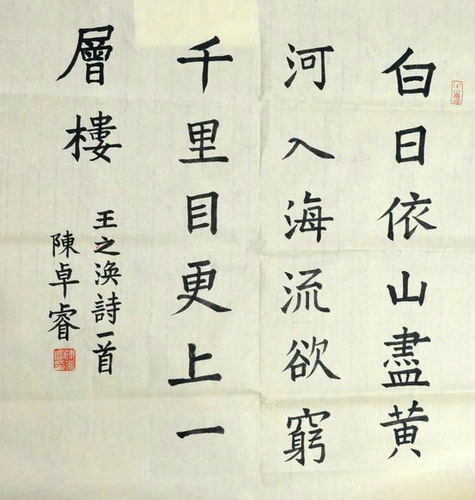 白日依山盡黄
河入海流欲窮
千里目更上一
層樓
王之渙詩一首
陳卓睿